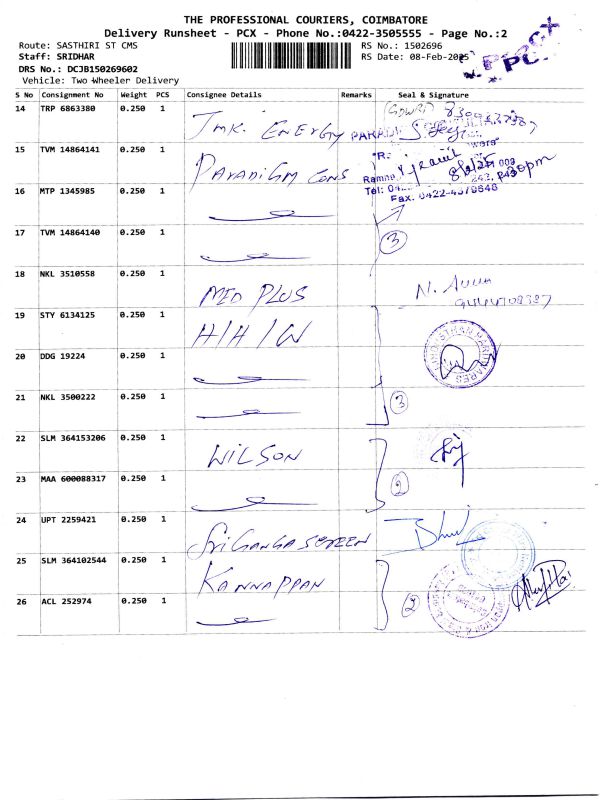 THE PROFESSIONAL COURIERS, COIMBATORE
Delivery Runsheet - PCX - Phone No.:0422-3505555 - Page No.:2
Route: SASTHIRI ST CMS RS No.: 1502696
Staff: SRIDHAR RS Date: 08-Feb-2025
DRS No.: DCJB150269602
Vehicle: Two Wheeler Delivery
PCX
S No Consignment No Weight PCS Consignee Details Remarks Seal & Signature
14 TRP 6863380 0.250 1 Tmk. ENERGY
15 TVM 14864141 0.250 1 PARADIGM CONS
16 MTP 1345985 0.250 1
Fax. 0422-4379648
17 TVM 14864140 0.250 1 3
18 NKL 3510558 0.250 1 MED PLUS
19 STY 6134125 0.250 1 H/H/W
20 DDG 19224 0.250 1
21 NKL 3500222 0.250 1 3
22 SLM 364153206 0.250 1 WILSON
23 MAA 600088317 0.250 1 2
24 UPT 2259421 0.250 1 Sri GANGA SCREEN
25 SLM 364102544 0.250 1 KANNAPPAN
26 ACL 252974 0.250 1 2